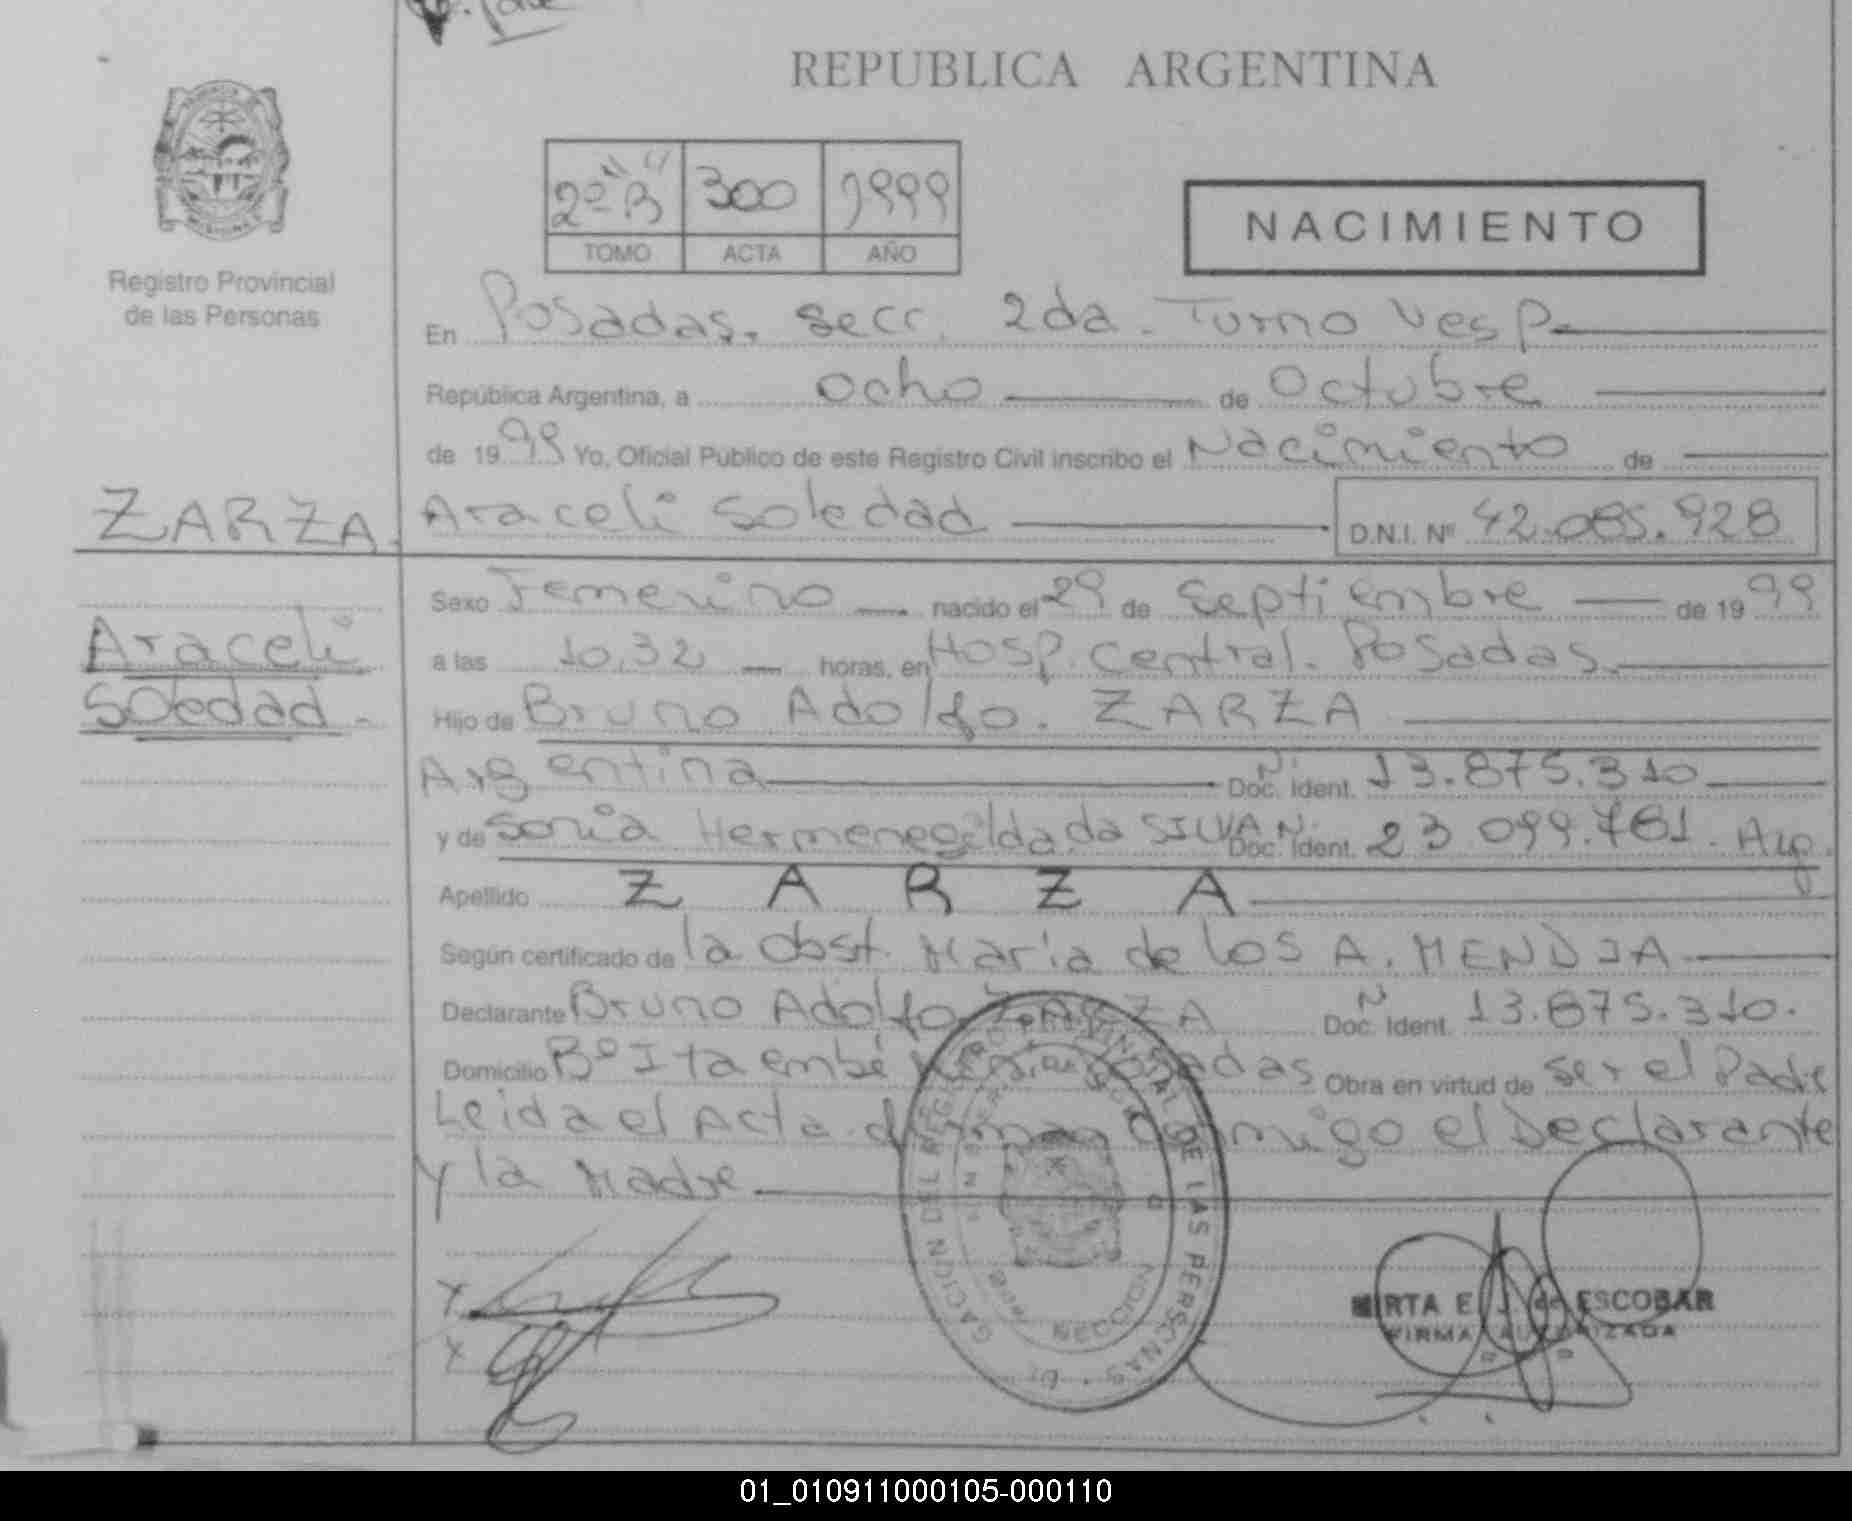 REPUBLICA ARGENTINA
Registro Provincial
de las Personas
2º "B" 300 1999
TOMO ACTA AÑO
NACIMIENTO
En Posadas, secc. 2da. Turno Vesp.
República Argentina, a ocho de Octubre
de 1999 Yo, Oficial Público de este Registro Civil inscribo el Nacimiento de
ZARZA. Araceli Soledad D.N.I. Nº 42.085.928
Araceli
Soledad.
Sexo Femenino nacido el 29 de Septiembre de 1999
a las 10,32 horas, en Hosp. Central. Posadas.
Hijo de Bruno Adolfo. ZARZA
Argentina Nº Doc. Ident. 13.875.310
y de Sonia Hermenegilda da SILVA N. Doc. Ident. 23 099.761. Arg.
Apellido Z A R Z A
Según certificado de la Obst. María de los A. MENDIA
Declarante Bruno Adolfo ZARZA N Doc. Ident. 13.875.310.
Domicilio Bº Itaembé Posadas Obra en virtud de ser el Padre
Leida el Acta firman conmigo el Declarante
y la Madre
X
X
DEL REGISTRO PROVINCIAL DE LAS PERSONAS
SECCION
MIRTA E. J. de ESCOBAR
FIRMA AUTORIZADA
01_010911000105-000110